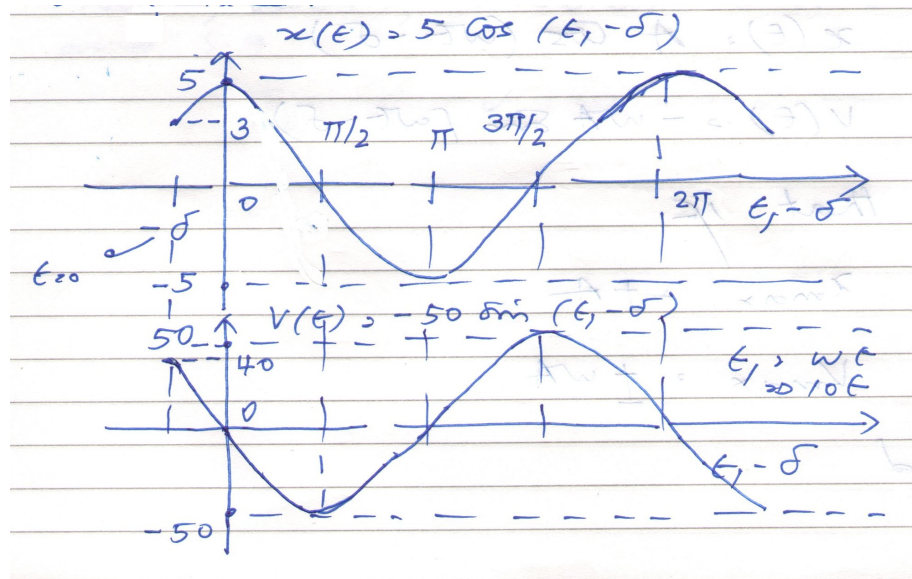 x(t) = 5 Cos (t₁ - δ)
5
3
π/2
π
3π/2
0
2π
t₁ - δ
-δ
t=0
-5
V(t) = -50 sin (t₁ - δ)
50
40
t₁ = ωt
= 10t
0
t₁ - δ
-50